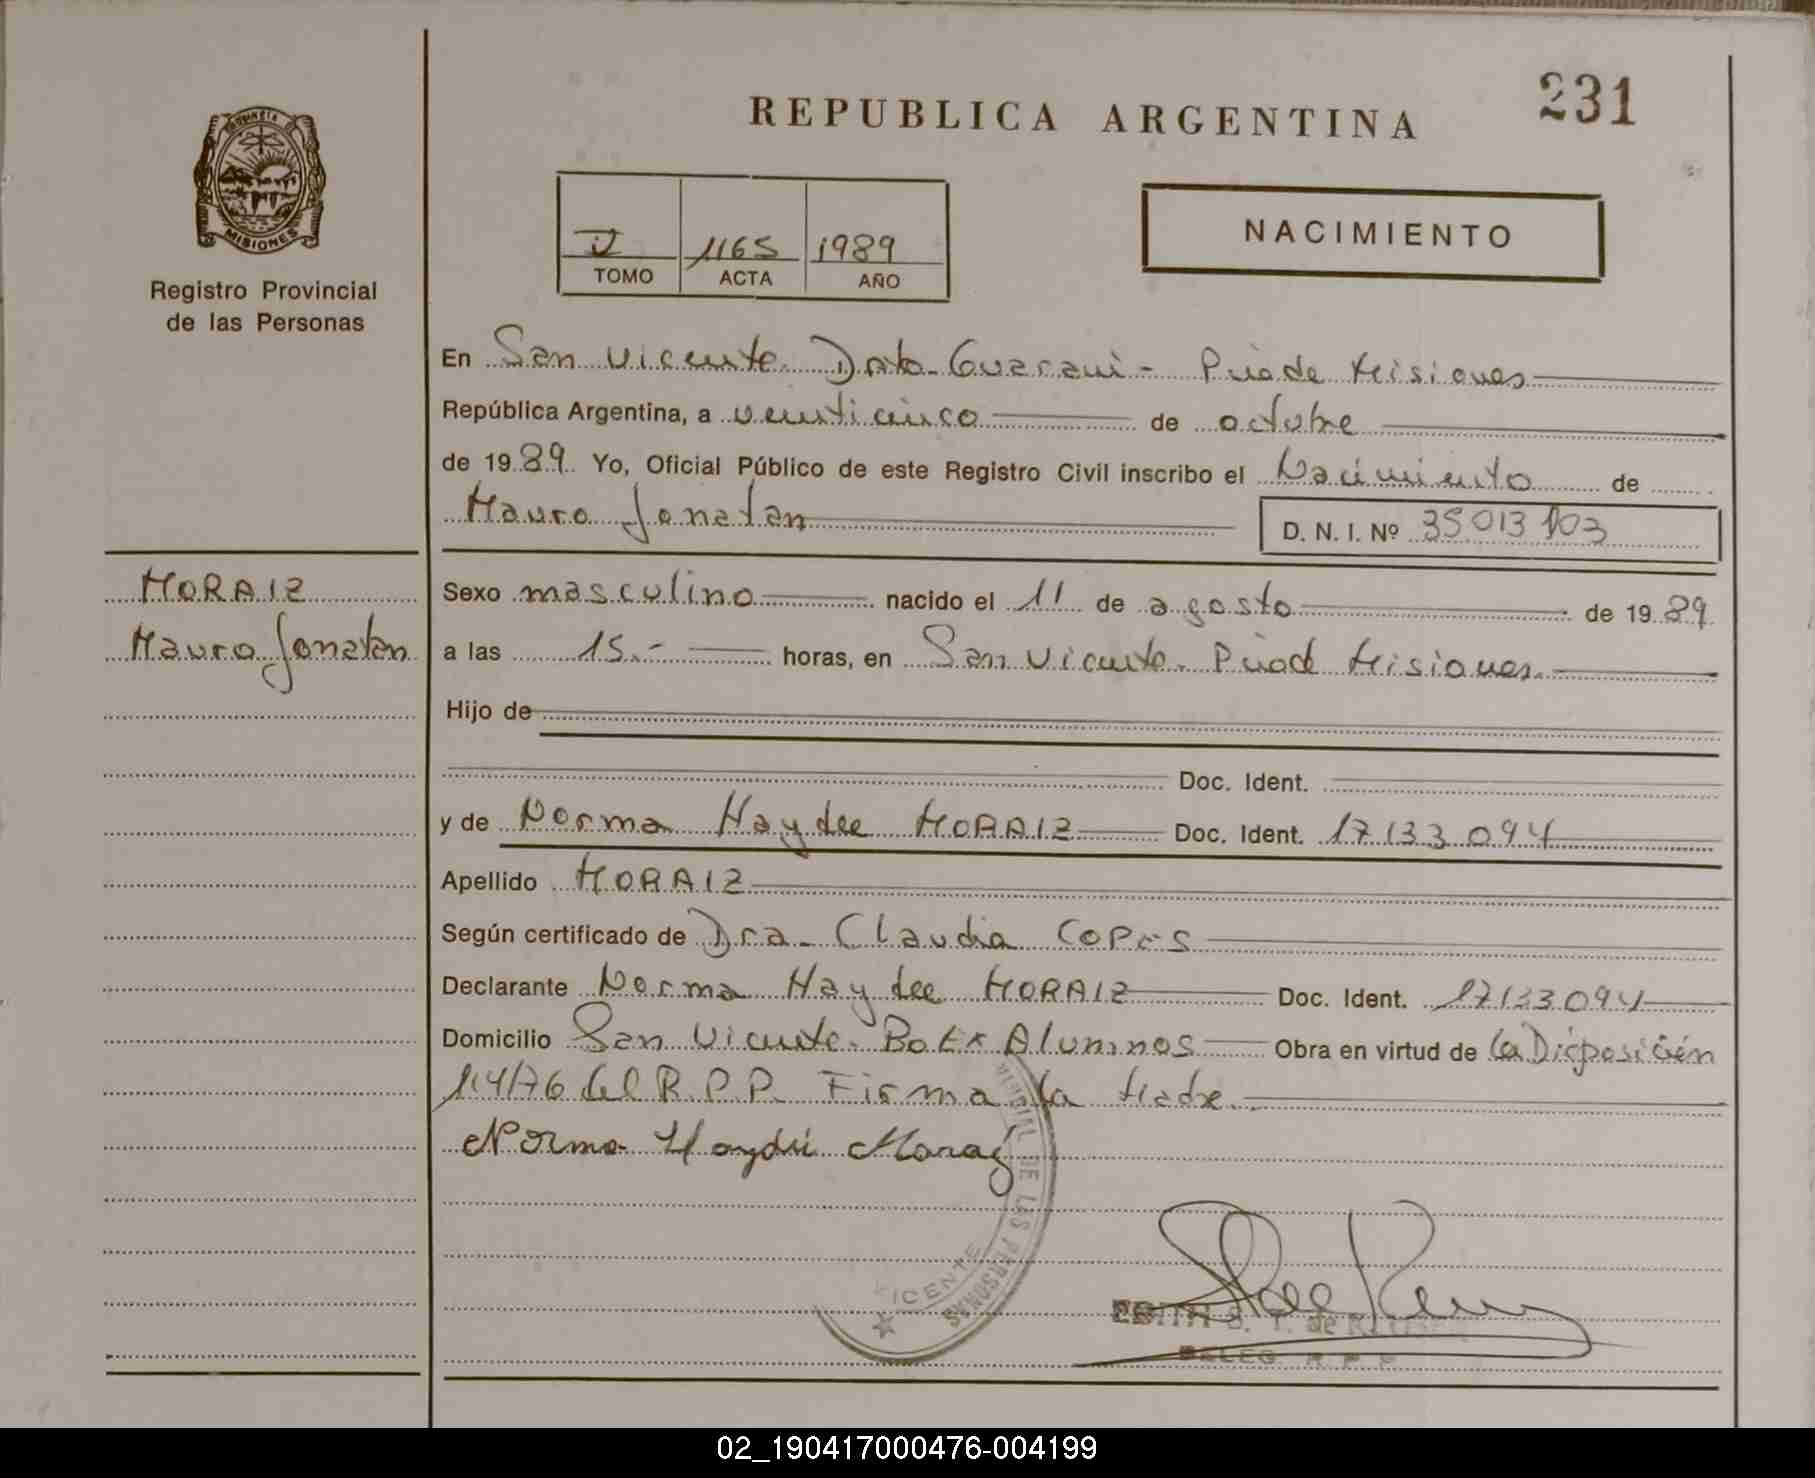 231
REPUBLICA ARGENTINA
PROVINCIA DE
MISIONES
Registro Provincial
de las Personas
II 1165 1989
TOMO ACTA AÑO
NACIMIENTO
En San Vicente. Dpto. Guaraní - Pcia de Misiones
República Argentina, a veinticinco de octubre
de 1989. Yo, Oficial Público de este Registro Civil inscribo el Nacimiento de
Mauro Jonatan
D. N. I. Nº 35013103
MORAIZ
Mauro Jonatan
Sexo masculino nacido el 11 de agosto de 1989
a las 15.- horas, en San Vicente. Pcia de Misiones.
Hijo de
Doc. Ident.
y de Norma Haydee MORAIZ Doc. Ident. 17133094
Apellido MORAIZ
Según certificado de Dra. Claudia
Declarante Norma Haydee MORAIZ Doc. Ident. 17133094
Domicilio San Vicente. Bo Ex Alumnos Obra en virtud de la Disposición
14/76 del R.P.P. Firma la Madre.
Norma Haydeé
DE LAS PERSONAS
VICENTE
02_190417000476-004199